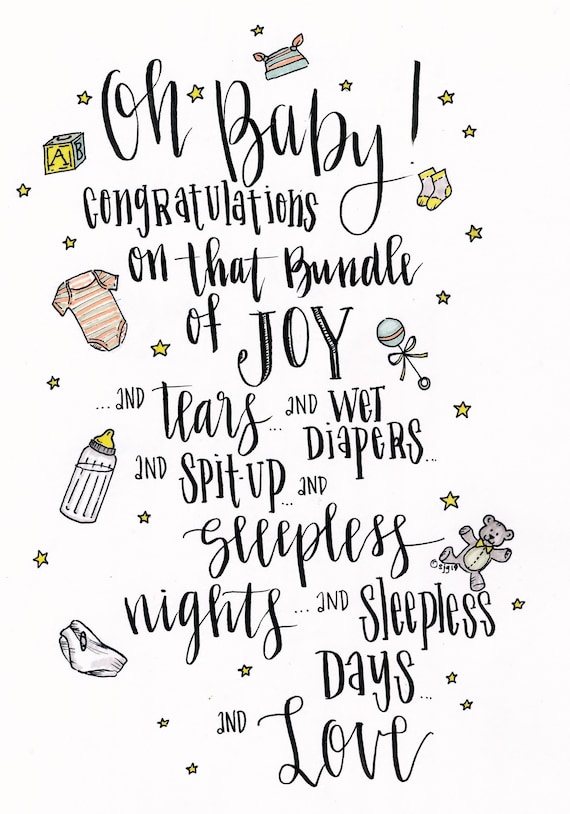 Oh Baby!
Congratulations
on that Bundle
of JOY
...AND Tears... AND WET
DIAPERS...
AND SPIT-UP... AND
Sleepless
nights... AND Sleepless
DAYS...
AND Love
A B
©sjg19